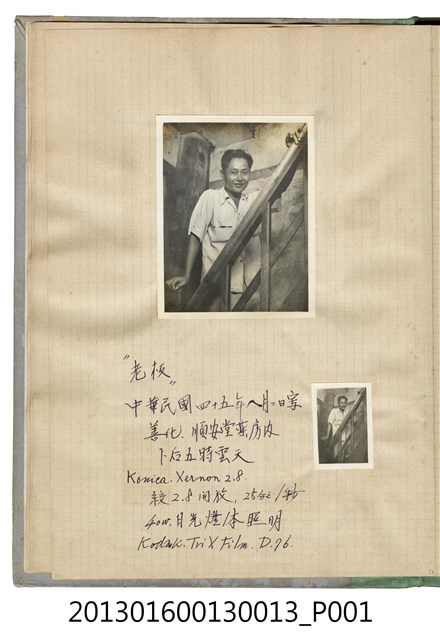 "老板"
中華民國四十五年八月二日寫
善化.順安堂藥房内
下后五時雲天
Konica.Xernon 2.8.
絞2.8開放.25分之1/秒
40W.日光燈1本照明
Kodak.Tri X Film.D.76.
201301600130013_P001